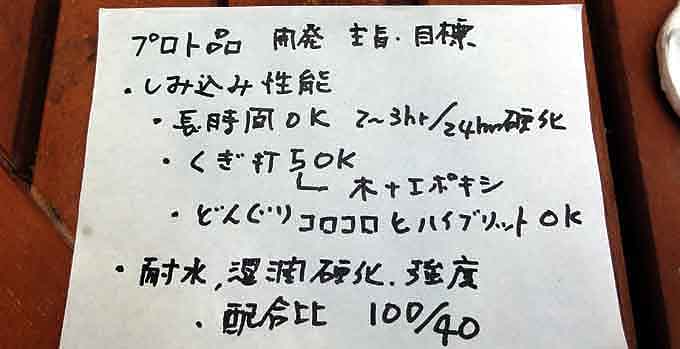 プロト品 開発 主旨・目標
・しみ込み性能
・長時間OK 2~3hr/24hr硬化
・くぎ打ちOK
木+エポキシ
・どんぐりコロコロとハイブリットOK
・耐水,湿潤硬化.強度
・配合比 100/40